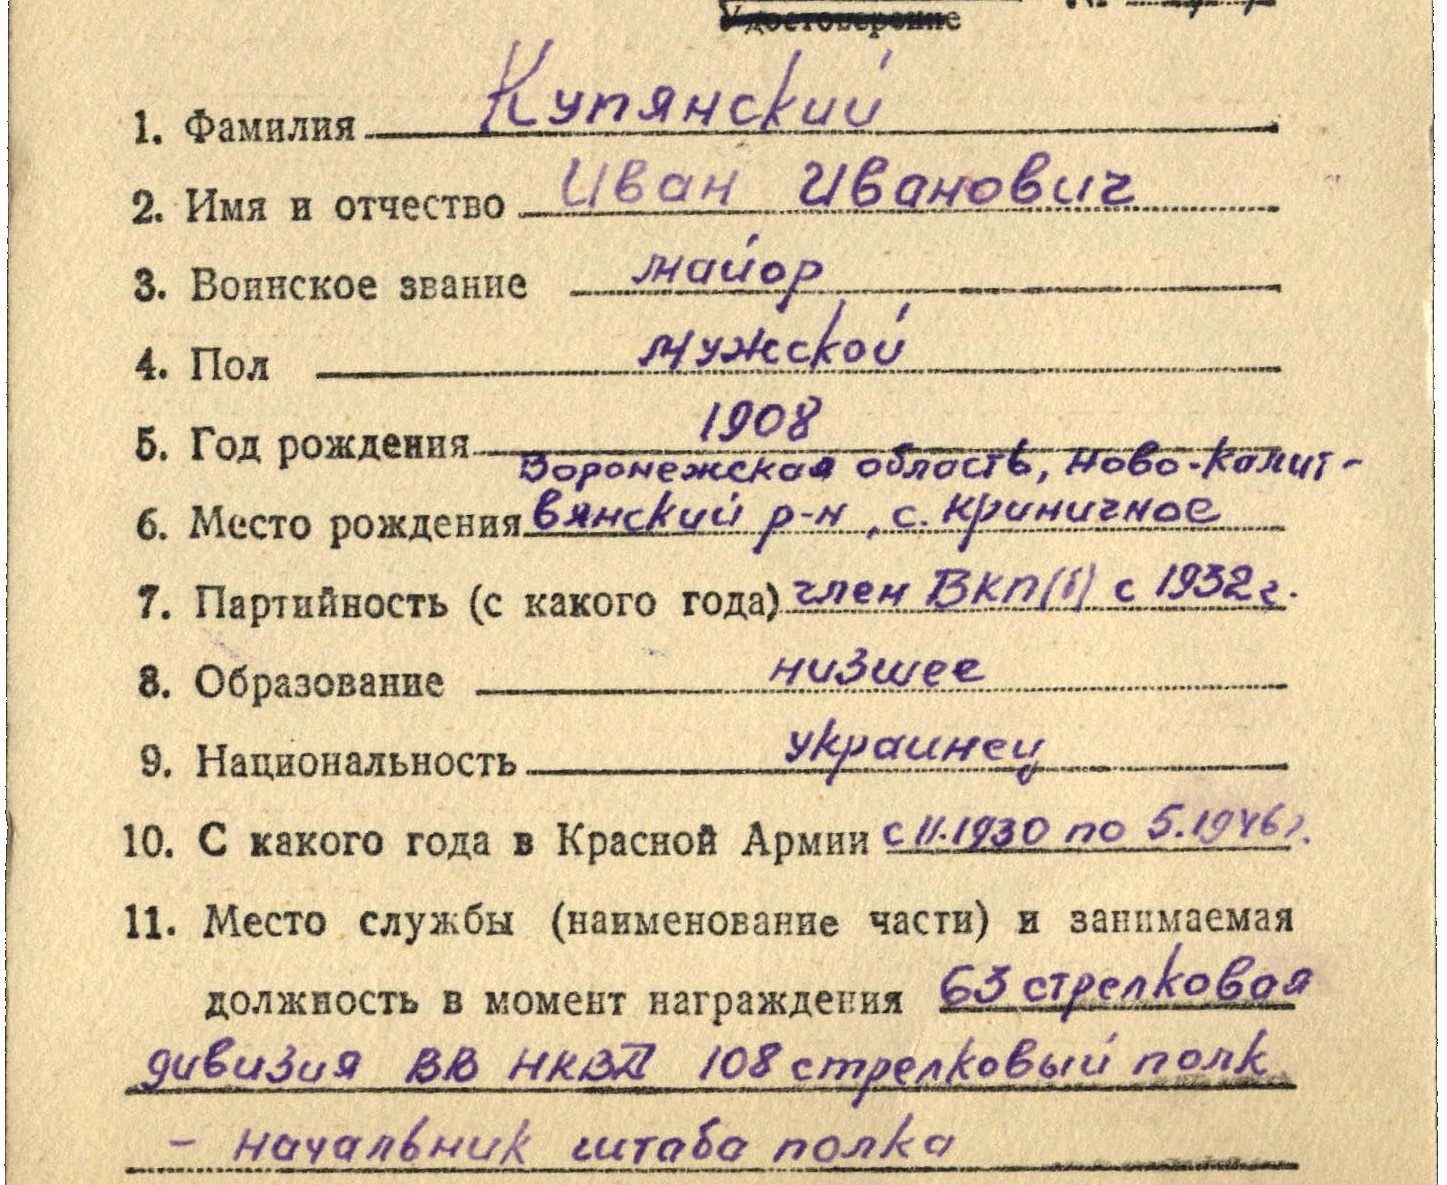 Удостоверение №
1. Фамилия Купянский
2. Имя и отчество Иван Иванович
3. Воинское звание майор
4. Пол мужской
5. Год рождения 1908
Воронежская область, Ново-Калит-
6. Место рождения вянский р-н, с. Криничное
7. Партийность (с какого года) член ВКП(б) с 1932 г.
8. Образование низшее
9. Национальность украинец
10. С какого года в Красной Армии с 11.1930 по 5.1946 г.
11. Место службы (наименование части) и занимаемая
должность в момент награждения 63 стрелковая
дивизия ВВ НКВД 108 стрелковый полк
- начальник штаба полка